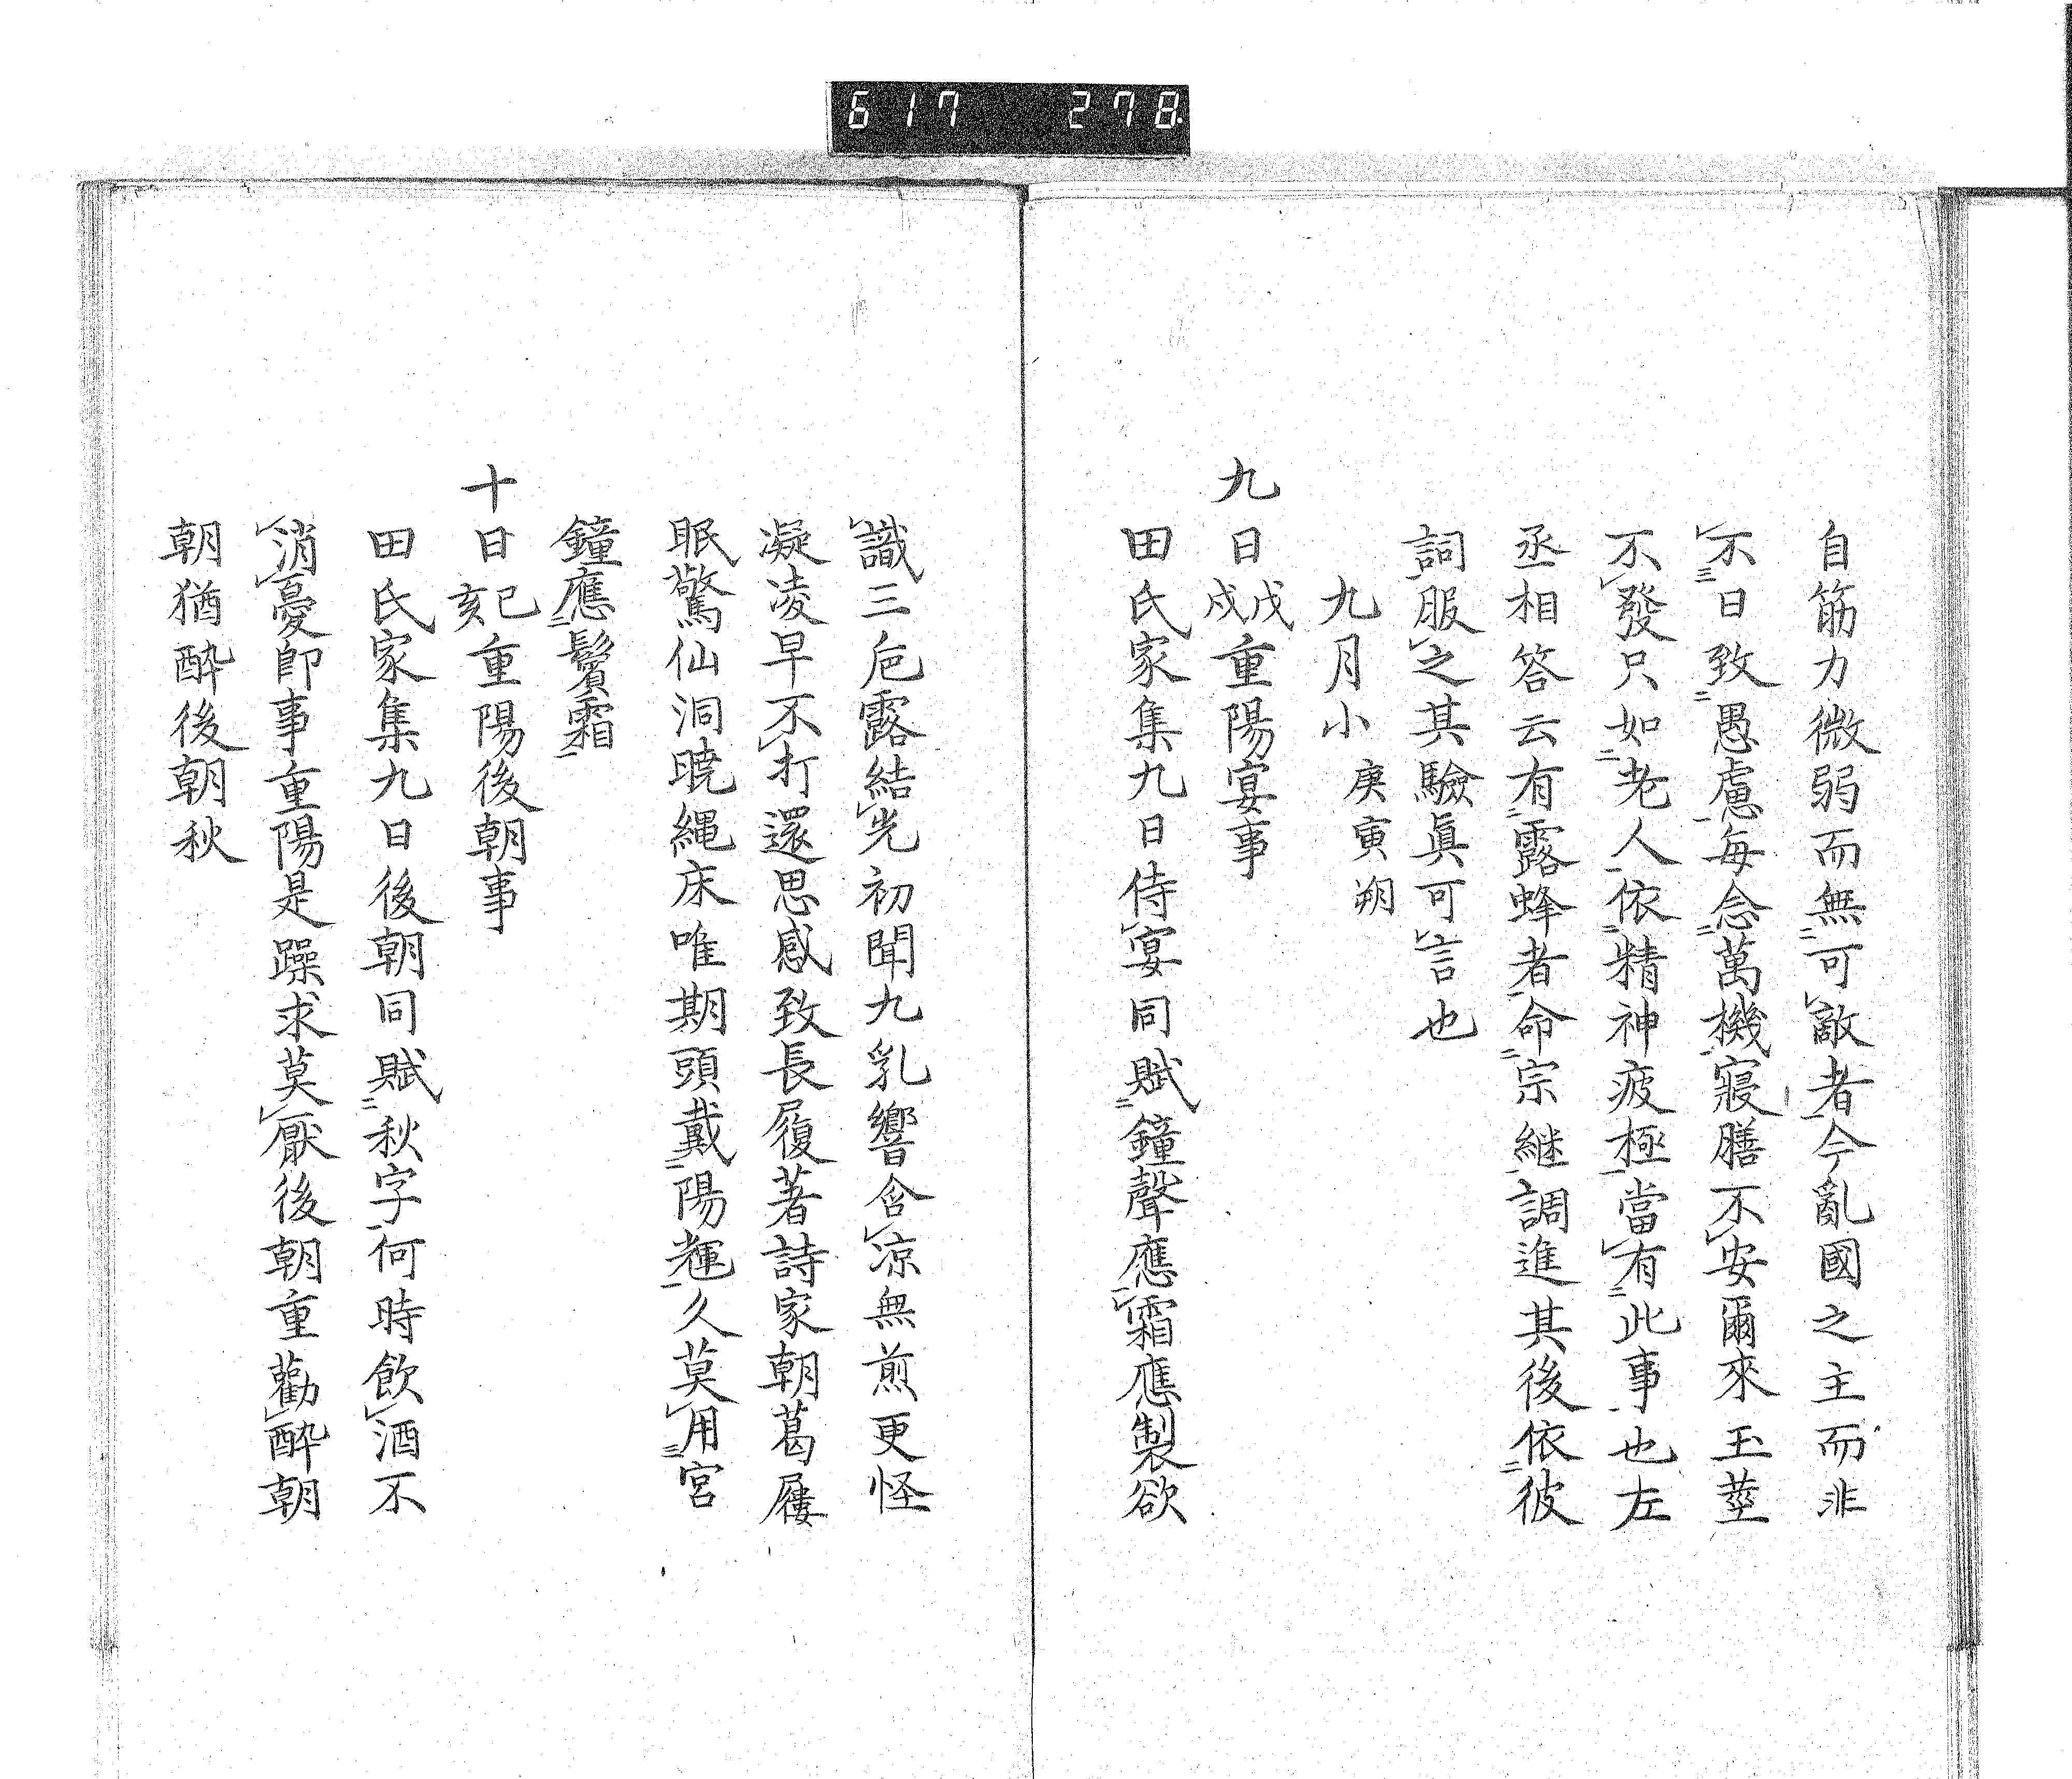 617 278
自筋力微弱而無可敵者今亂國之主而非
不日致愚慮每念萬機寢膳不安爾來玉莖
不發只如老人依精神疲極當有此事也左
丞相答云有露蜂者命宗継調進其後依彼
詞服之其驗眞可言也
九月小庚寅朔
九日戊戌重陽宴事
田氏家集九日侍宴同賦鐘聲應霜應製欲
識三巵露結光初聞九乳響含凉無煎更怪
凝凌早不打還思感致長履著詩家朝葛屨
眠驚仙洞曉繩床唯期頭戴陽輝久莫用宮
鐘應鬢霜
十日己亥重陽後朝事
田氏家集九日後朝同賦秋字何時飲酒不
消憂卽事重陽是躁求莫厭後朝重勸醉朝
朝猶醉後朝秋